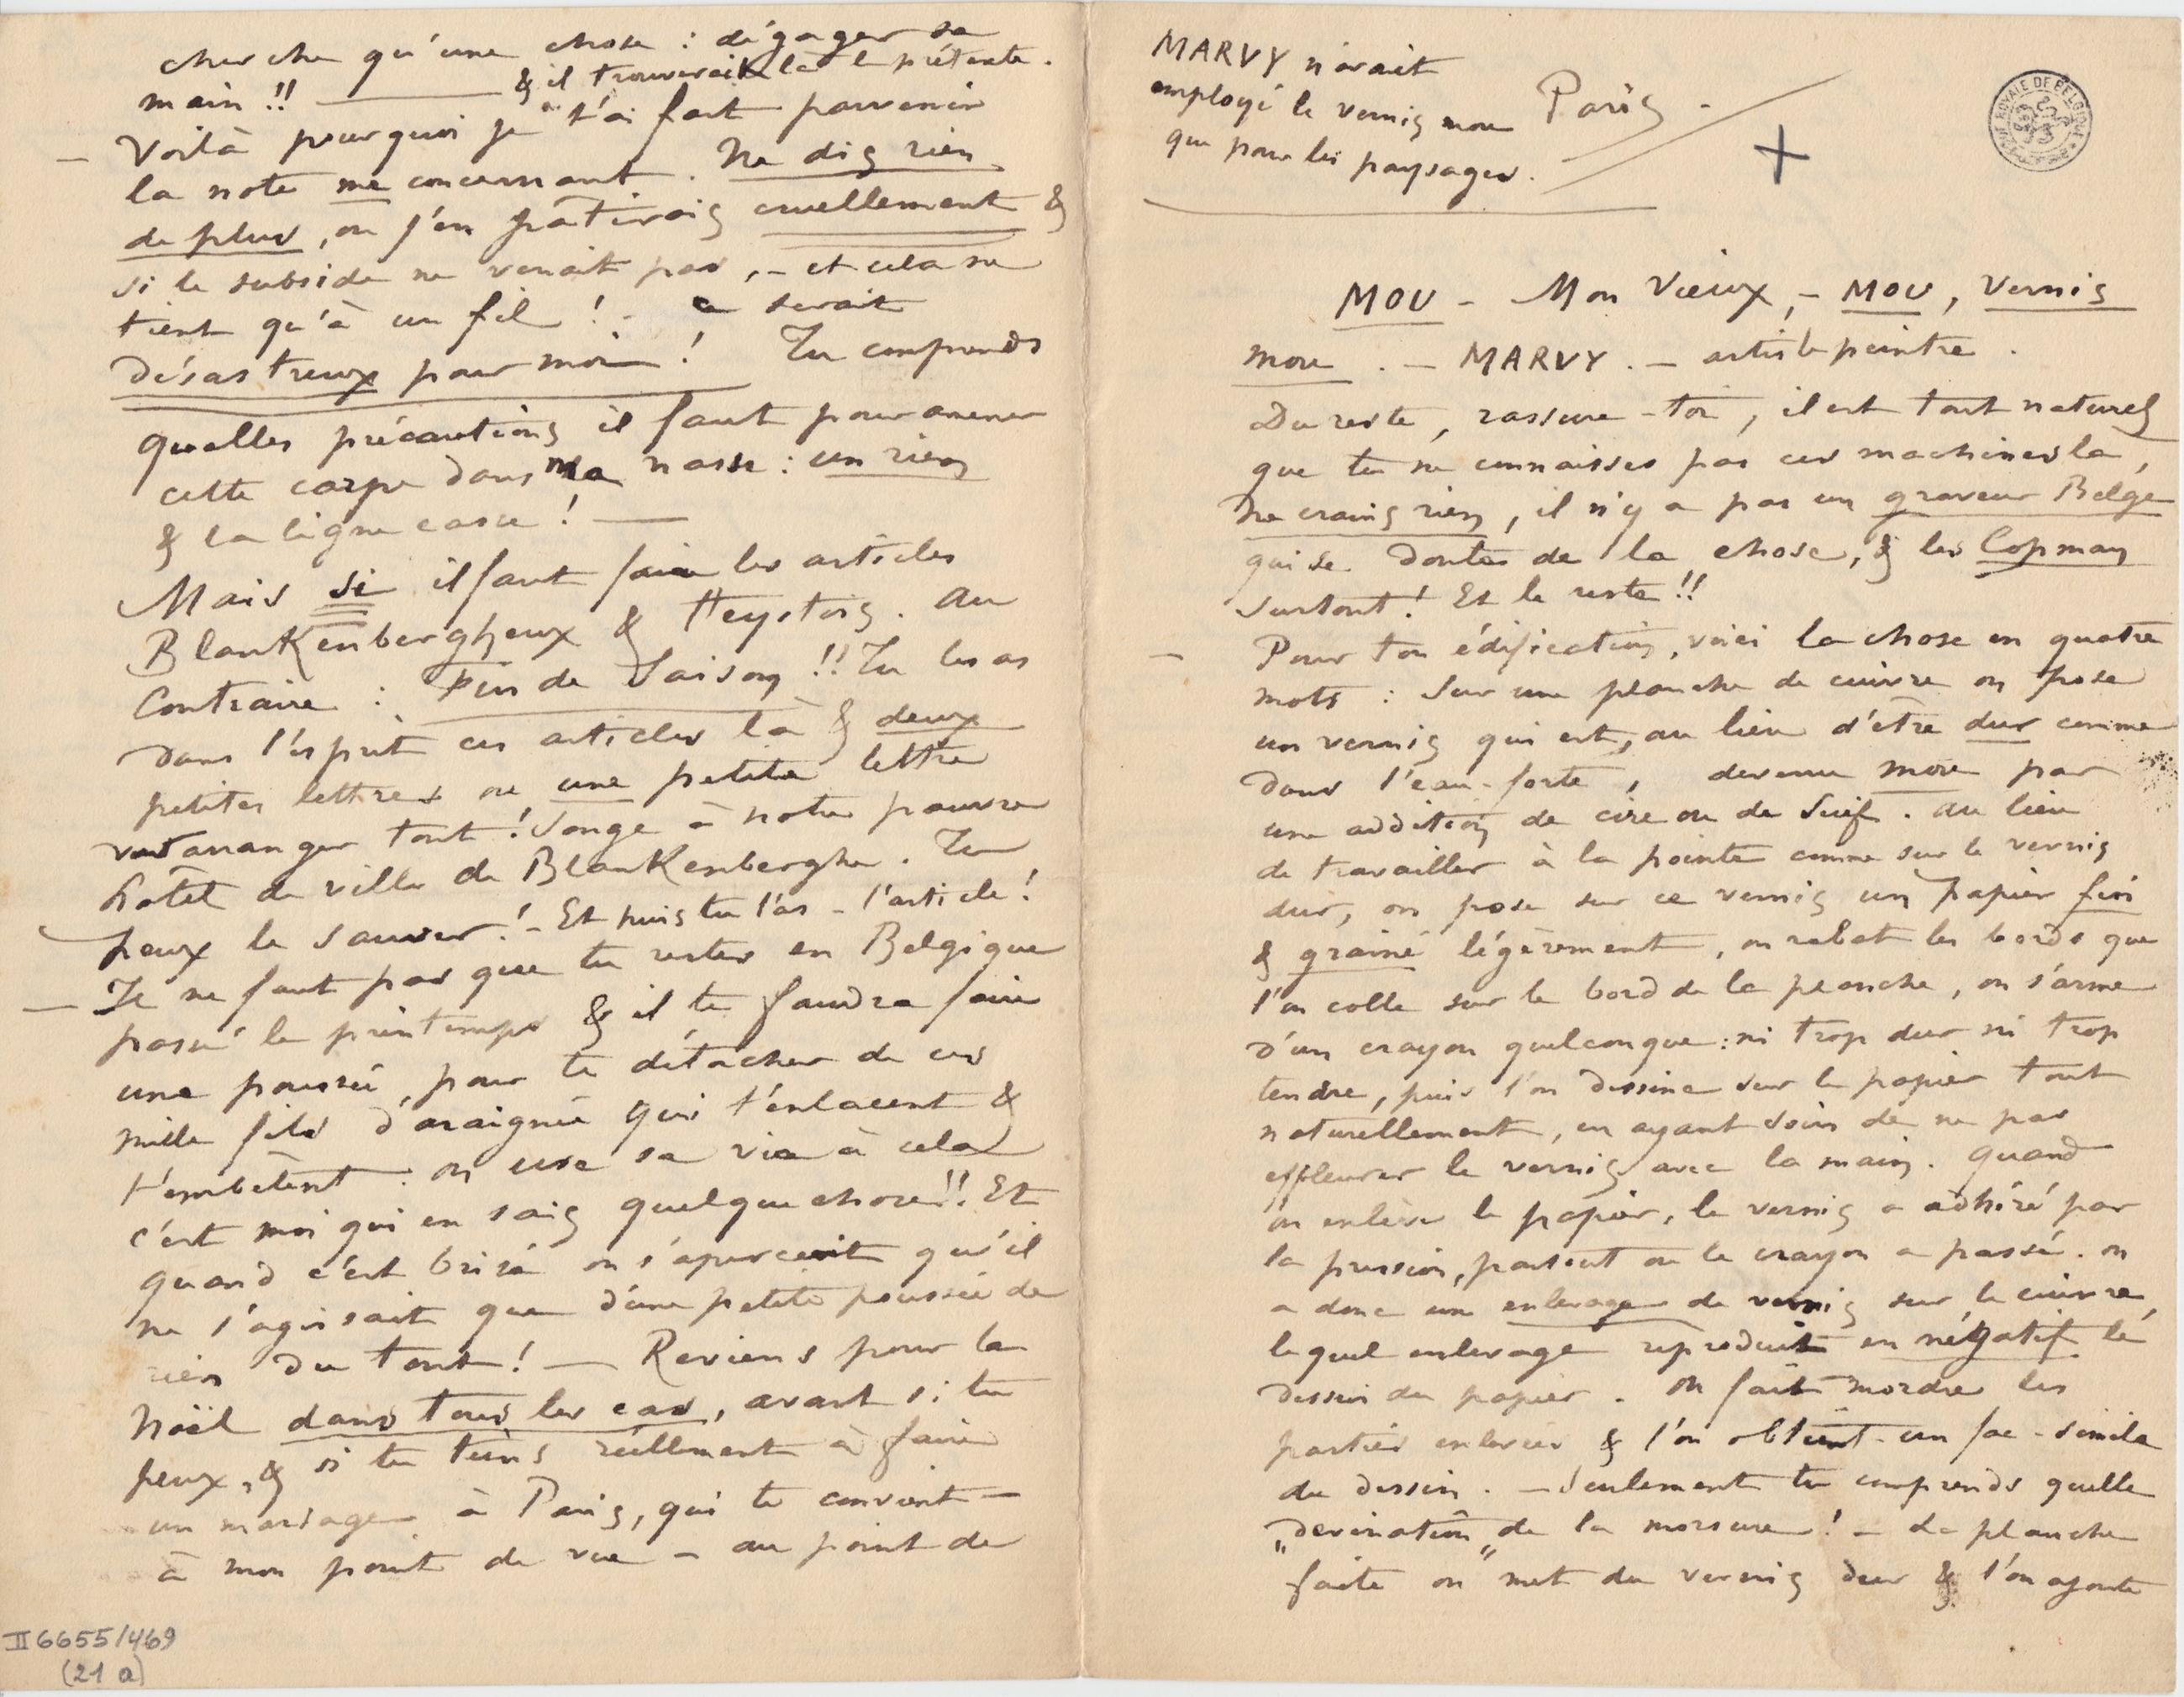 cherche qu'une chose : dégager sa
main !! — & il trouverait là le prétexte.
— Voilà pourquoi je t'ai fait parvenir
la note me concernant. Ne dis rien
de plus, ou j'en pâtirais cruellement &
si le subside ne venait pas, – et cela ne
tient qu'à un fil ! – ce serait
désastreux pour moi ! Tu comprends
quelles précautions il faut pour amener
cette carpe dans ma nasse : un rien
& la ligne casse ! —
Mais si il faut faire les articles
Blankenbergheux & Heystois. Au
Contraire : Fin de Saison !! Tu les as
dans l'esprit ces articles là & deux
petites lettres ou une petite lettre
vont arranger tout ! Songe à notre pauvre
hôtel de ville de Blankenberghe. Tu
peux le sauver ! – Et puis tu l'as – l'article !
— Il ne faut pas que tu restes en Belgique
passé le printemps & il te faudra faire
une poussée, pour te détacher de ces
mille fils d'araignée qui t'enlacent &
t'embêtent : on use sa vie à cela
c'est moi qui en sais quelque chose !! Et
quand c'est brisé on s'aperçoit qu'il
ne s'agissait que d'une petite poussée de
rien du tout ! — Reviens pour la
Noël dans tous les cas, avant si tu
peux, & si tu tiens réellement à faire
un mariage à Paris, qui te convient –
à mon point de vue – au point de
II 6655/469
(21 a)
MARVY n'avait
employé le vernis mou
que pour les paysages.
Paris –
+
MOU – Mon Vieux, – MOU, Vernis
mou. – MARVY. – artiste peintre.
Du reste, rassure-toi, il est tout naturel
que tu ne connaisses pas ces machines là,
Ne crains rien, il n'y a pas un graveur Belge
qui se doute de la chose, & les Copman
surtout ! Et le reste !!
— Pour ton édification, voici la chose en quatre
mots : Sur une planche de cuivre on pose
un vernis qui est, au lieu d'être dur comme
dans l'eau-forte, devenu mou par
une addition de cire ou de suif. Au lieu
de travailler à la pointe comme sur le vernis
dur, on pose sur ce vernis un papier fin
& grainé légèrement, on rabat les bords que
l'on colle sur le bord de la planche, on s'arme
d'un crayon quelconque : ni trop dur ni trop
tendre, puis l'on dessine sur le papier tout
naturellement, en ayant soin de ne pas
effleurer le vernis avec la main. Quand
on enlève le papier, le vernis a adhéré par
la pression, partout ou le crayon a passé. on
a donc un enlevage de vernis sur le cuivre,
lequel enlevage reproduit en négatif le
dessin du papier. On fait mordre les
parties enlevées & l'on obtient un fac-simile
du dessin. – Seulement tu comprends quelle
„devination" de la morsure ! – La planche
faite on met du vernis dur & l'on ajoute